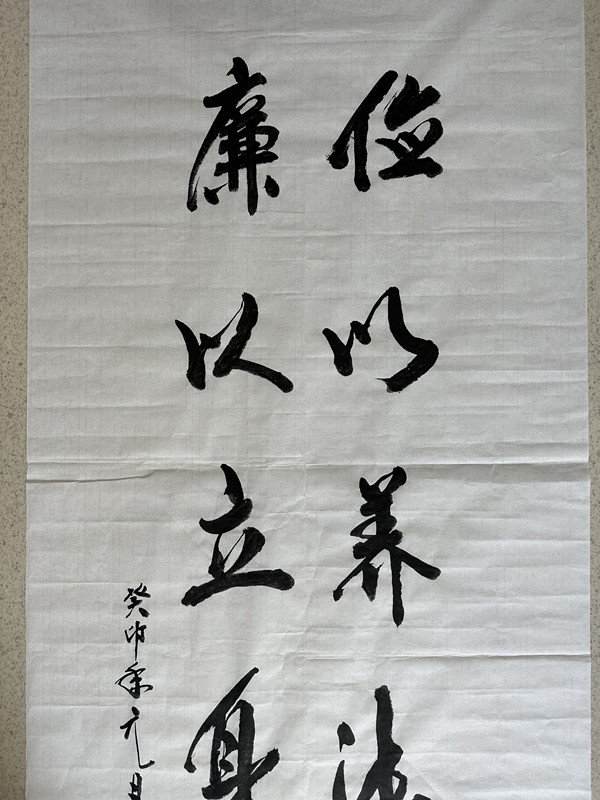 俭以养德
廉以立身
癸卯年元月